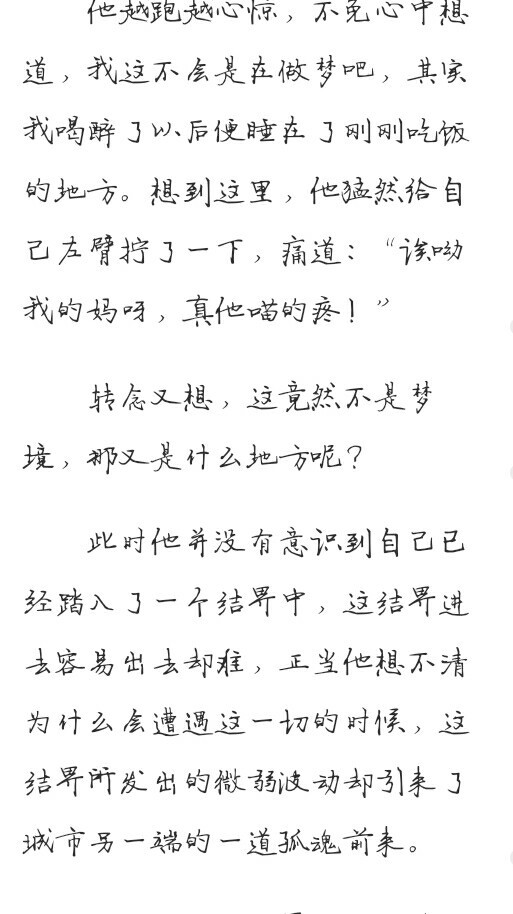 他越跑越心惊，不免心中想
道，我这不会是在做梦吧，其实
我喝醉了以后便睡在了刚刚吃饭
的地方。想到这里，他猛然给自
己左臂拧了一下，痛道：“诶呦
我的妈呀，真他喵的疼！”
转念又想，这竟然不是梦
境，那又是什么地方呢？
此时他并没有意识到自己已
经踏入了一个结界中，这结界进
去容易出去却难，正当他想不清
为什么会遭遇这一切的时候，这
结界所发出的微弱波动却引来了
城市另一端的一道孤魂前来。